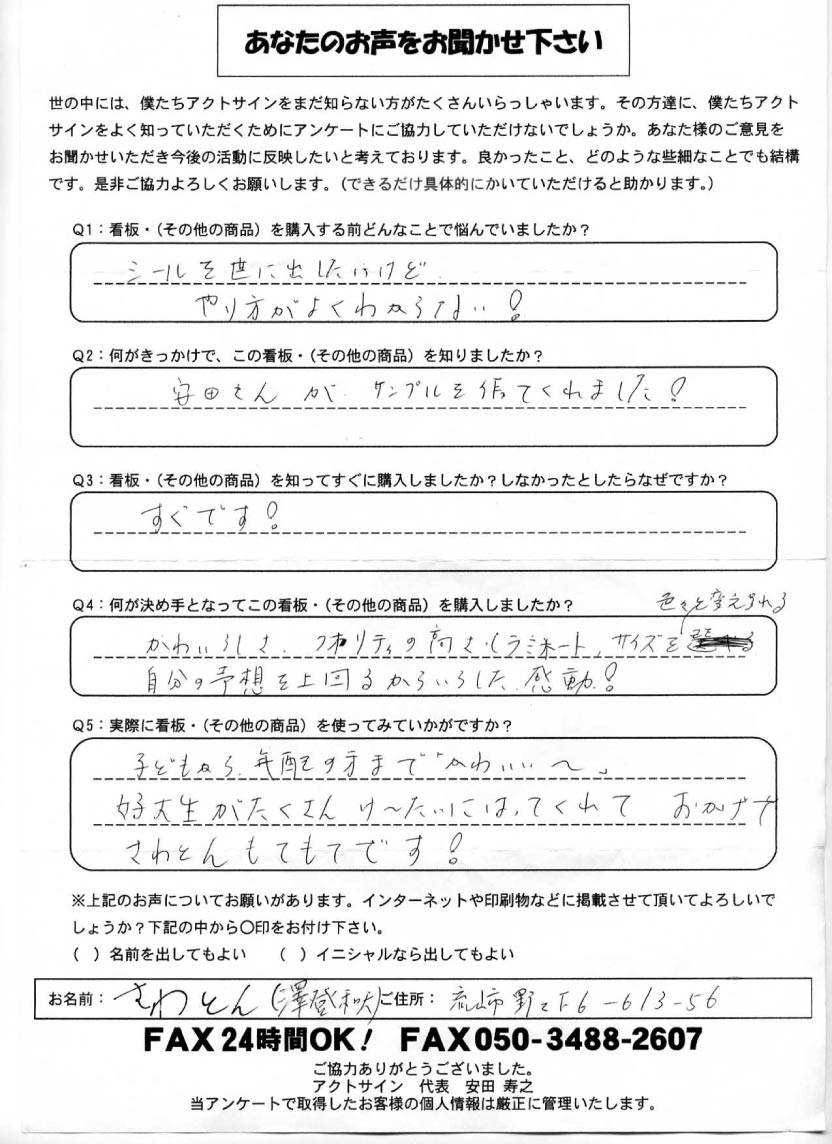 あなたのお声をお聞かせ下さい
世の中には、僕たちアクトサインをまだ知らない方がたくさんいらっしゃいます。その方達に、僕たちアクト
サインをよく知っていただくためにアンケートにご協力していただけないでしょうか。あなた様のご意見を
お聞かせいただき今後の活動に反映したいと考えております。良かったこと、どのような些細なことでも結構
です。是非ご協力よろしくお願いします。（できるだけ具体的にかいていただけると助かります。）
Q1：看板・（その他の商品）を購入する前どんなことで悩んでいましたか？
シールを世に出したいけど
やり方がよくわからない！
Q2：何がきっかけで、この看板・（その他の商品）を知りましたか？
安田さんが サンプルを作ってくれました！
Q3：看板・（その他の商品）を知ってすぐに購入しましたか？しなかったとしたらなぜですか？
すぐです！
Q4：何が決め手となってこの看板・（その他の商品）を購入しましたか？
色々と変えられる
かわいらしさ、クオリティの高さ、（ラミネート、サイズを
自分の予想を上回るかわいらしさ 感動！
Q5：実際に看板・（その他の商品）を使ってみていかがですか？
子どもから、年配の方まで「かわいい〜」
女子大生がたくさん けーたいにはってくれて おかげで
さわとんもてもてです！
※上記のお声についてお願いがあります。インターネットや印刷物などに掲載させて頂いてよろしいで
しょうか？下記の中から〇印をお付け下さい。
（ ）名前を出してもよい （ ）イニシャルなら出してもよい
お名前： さわとん（澤登和夫） ご住所： 流山市野々下6-613-56
FAX24時間OK！ FAX050-3488-2607
ご協力ありがとうございました。
アクトサイン 代表 安田 寿之
当アンケートで取得したお客様の個人情報は厳正に管理いたします。